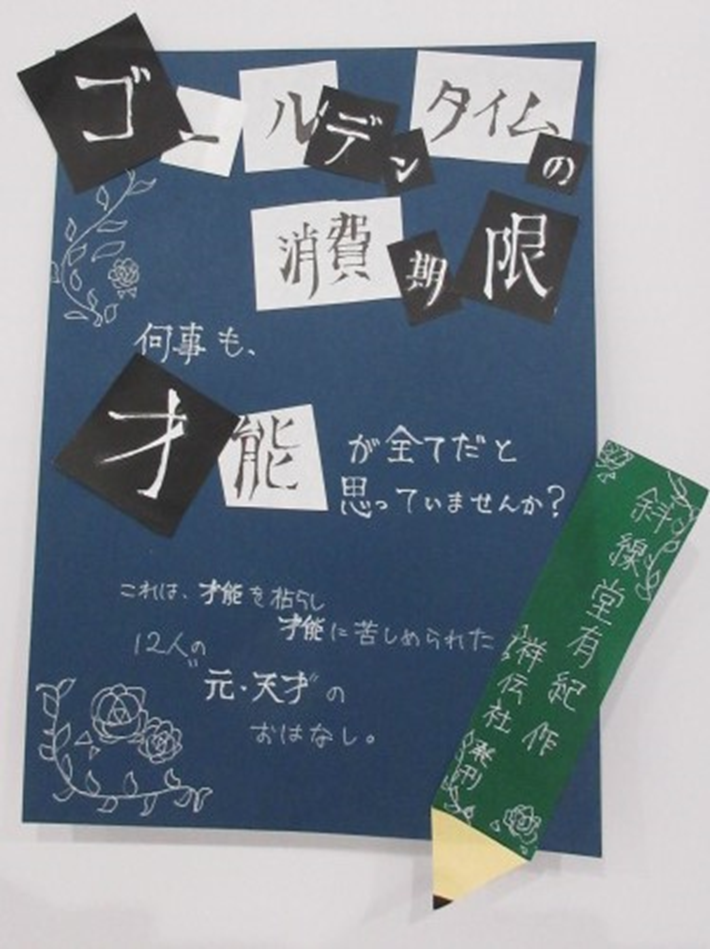 ゴールデンタイムの
消費期限
何事も、
才能が全てだと
思っていませんか?
これは、才能を枯らし
才能に苦しめられた
12人の
"元・天才"の
おはなし。
斜線堂有紀 作
祥伝社 発刊